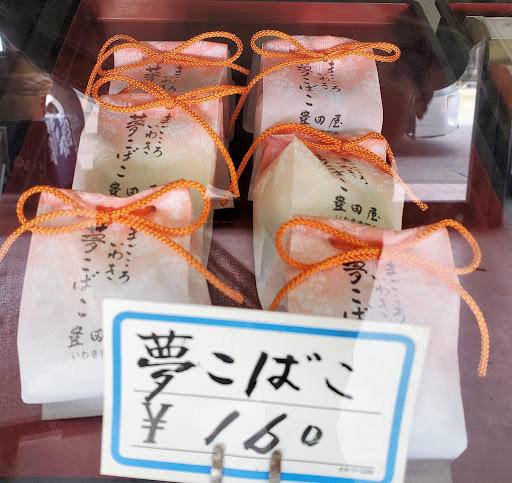 まごころ
いわき
夢こばこ
豊田屋
まごころ
いわき
夢こばこ
豊田屋
まごころ
いわき
夢こばこ
豊田屋
いわき
まごころ
いわき
夢こばこ
豊田屋
いわき
夢こばこ
￥160